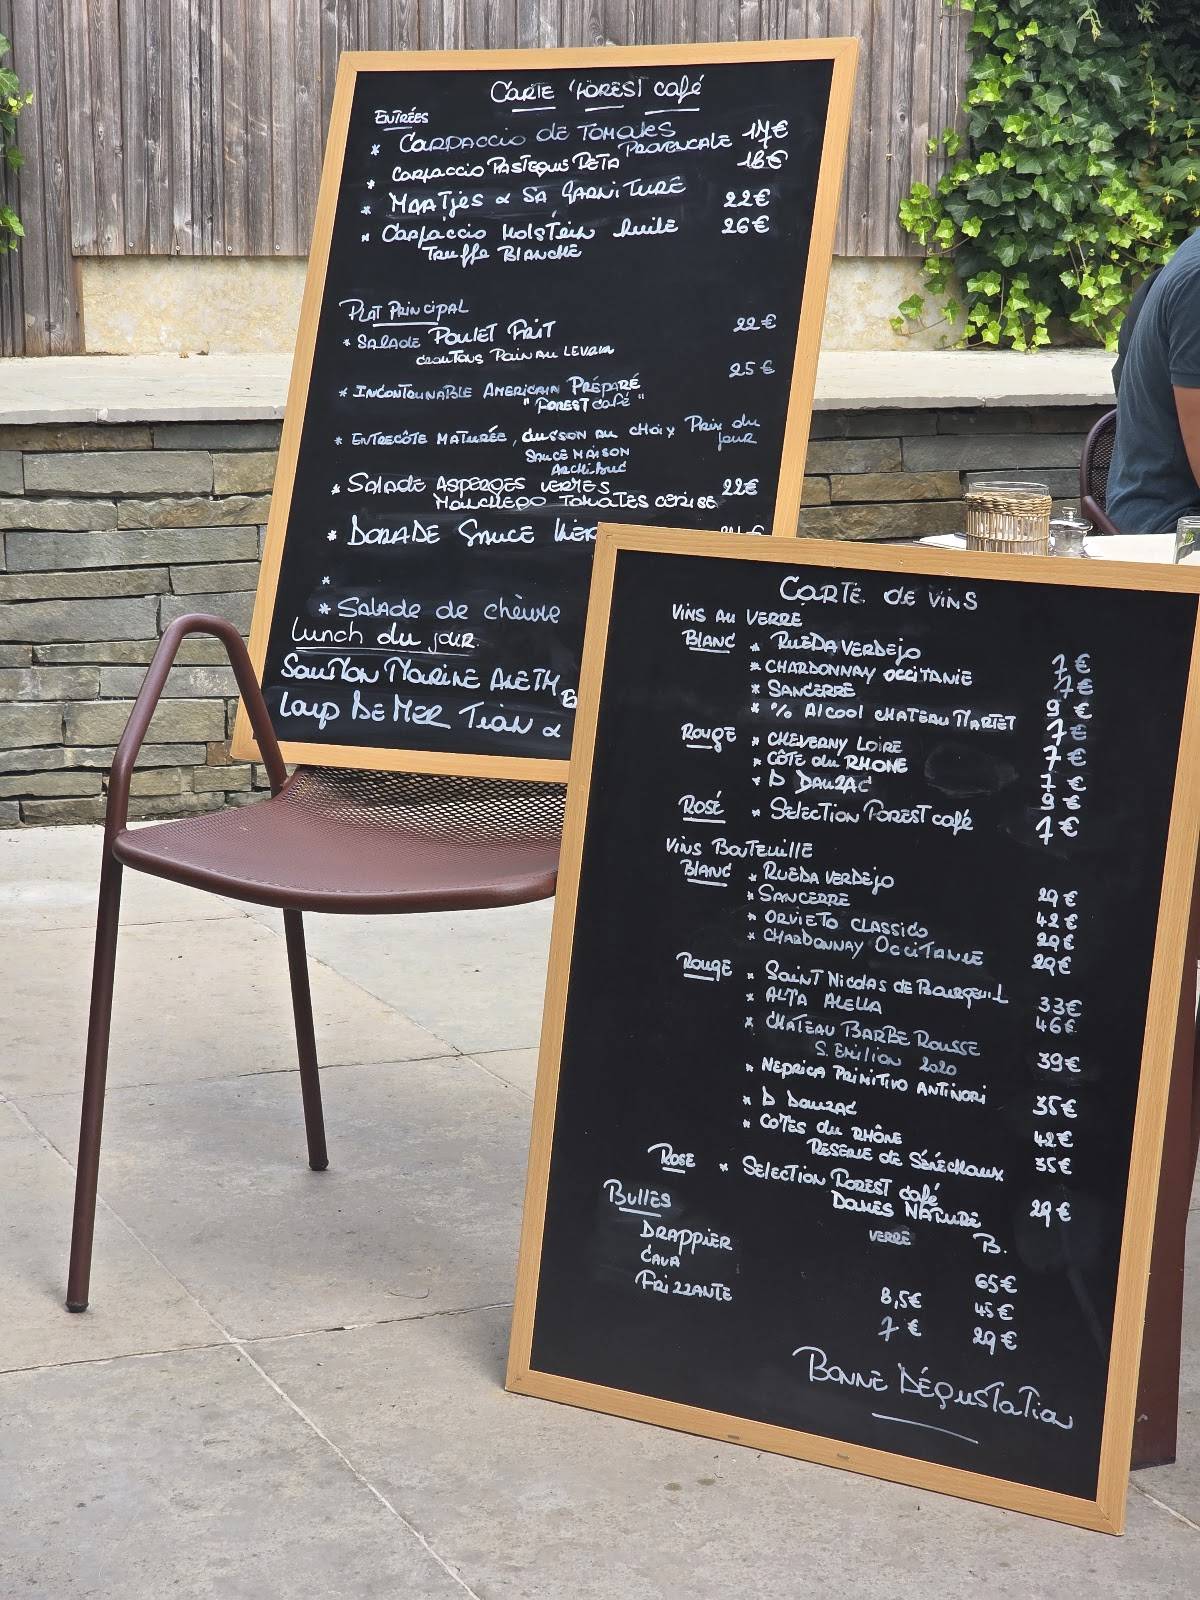 CARTE FOREST café
ENTRÉES
* CARPACCIO DE TOMATES
PROVENCALE 17€
* CARPACCIO PASTEQUE FETA 18€
* MAATJES & SA GARNITURE 22€
* CARPACCIO HOLSTEIN huile 26€
Truffe BLANCHE
PLAT PRINCIPAL
* SALADE POULET FRIT 22€
CROUTONS PAIN AU LEVAIN
* INCONTOURNABLE AMERICAIN PRÉPARÉ 25€
"FOREST café"
* ENTRECÔTE MATURÉE, CUISSON AU CHOIX Prix du
jour
SAUCE MAISON
ARCHIDUC
* SALADE ASPERGES VERTES 22€
MANCHEGO TOMATES CERISE
* DORADE SAUCE
*
* SALADE de chèvre
Lunch du jour
SAUMON MARINÉ ANETH
LOUP DE MER TIAN &
CARTE DE VINS
VINS AU VERRE
BLANC * RUEDA VERDEJO 7€
* CHARDONNAY OCCITANIE 7€
* SANCERRE 9€
* 0% ALCOOL CHATEAU MARTET 7€
ROUGE * CHEVERNY LOIRE 7€
* CÔTE du RHONE 7€
* D DAUZAC 9€
ROSÉ * SELECTION FOREST café 7€
VINS BOUTEILLE
BLANC * RUEDA VERDEJO 29€
* SANCERRE 42€
* ORVIETO CLASSICO 29€
* CHARDONNAY OCCITANIE 29€
ROUGE * SAINT NICOLAS DE BOURGEUIL 33€
* ALTA ALELLA 46€
* CHÂTEAU BARBE ROUSSE
S. EMILION 2020 39€
* NEPRICA PRIMITIVO ANTINORI 35€
* D DAUZAC 42€
* COTES du RHÔNE
RESERVE de SÉNÉCHAUX 35€
ROSE * SELECTION FOREST café
DAMES NATURE 29€
BULLES VERRE B.
DRAPPIER 65€
CAVA 8,5€ 45€
FRIZZANTE 7€ 29€
BONNE DÉGUSTATION